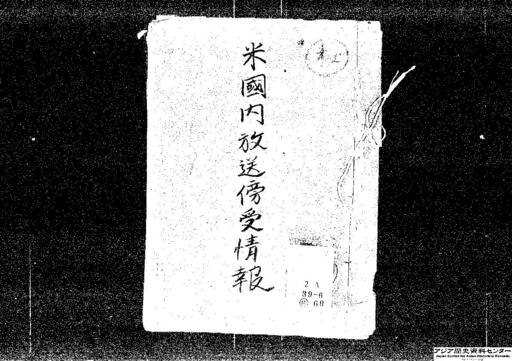 米國内放送傍受情報
2A
39-6
Ⓒ60
アジア歴史資料センター
Japan Center for Asian Historical Records